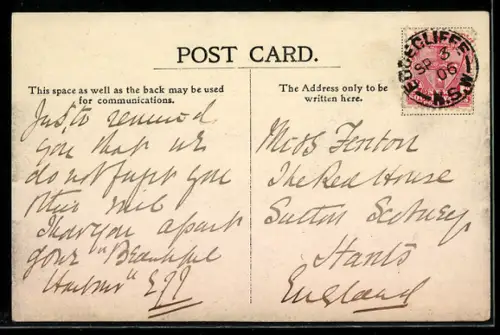 POST CARD.
This space as well as the back may be used
for communications.
The Address only to be
written here.
EDGECLIFFE
SP 3
06
N.S.W
Just to remind
you that we
do not forget you
this
Miss Fenton
The Red House
Sutton Scotney
Hants
England
"Beautiful
Harbour"